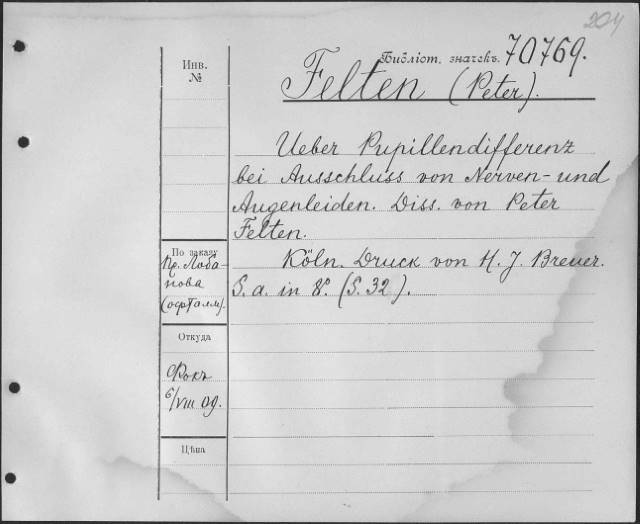 204
Библіот. значекъ. 70769.
Инв.
№
Felten (Peter).
Ueber Pupillendifferenz
bei Ausschluss von Nerven- und
Augenleiden. Diss. von Peter
Felten.
Köln. Druck von H. J. Breuer.
S. a. in 8º. (S. 32).
По заказу
Пр. Лоба-
нова
(офталм).
Откуда
Фокъ
6/VIII 09.
Цѣна